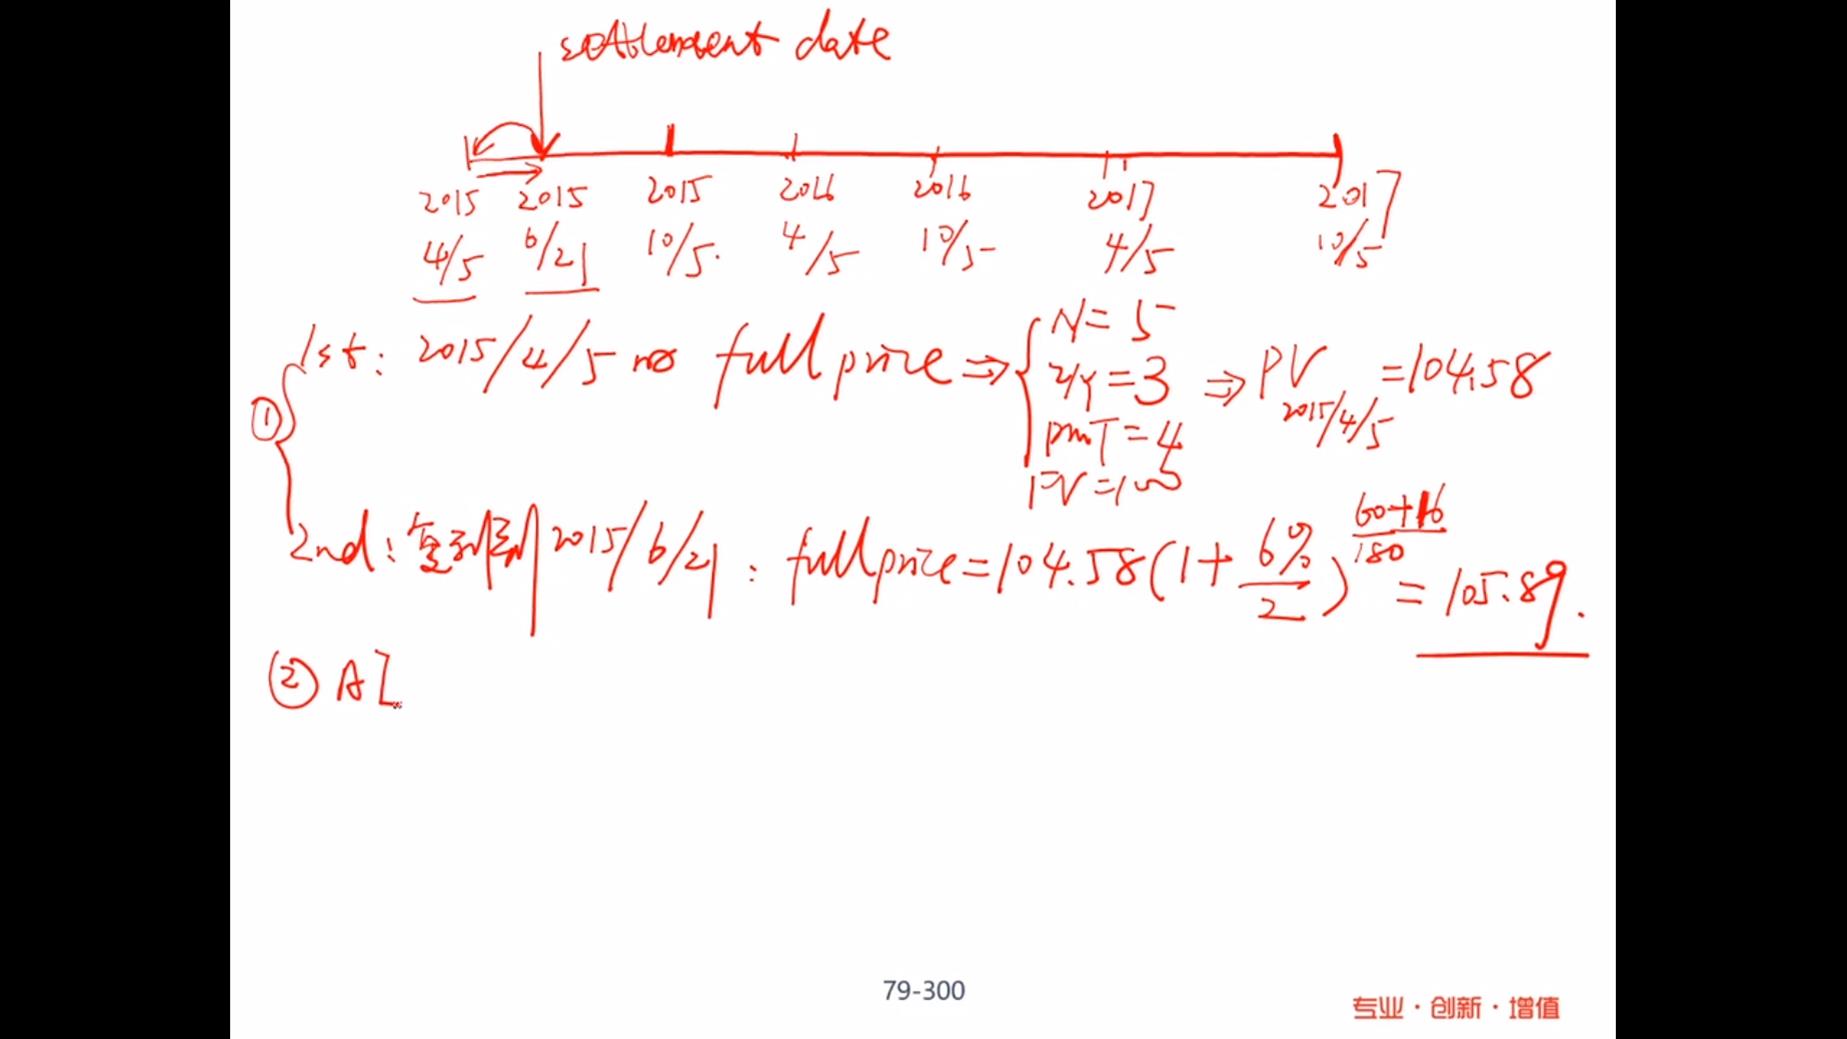 settlement date
2015 2015 2015 2016 2016 2017 2017
4/5 6/21 10/5. 4/5 10/5 4/5 10/5
① 1st: 2015/4/5 full price ⇒ { N = 5
I/Y = 3 ⇒ PV 2015/4/5 = 104.58
PMT = 4
FV = 100
2nd: 复利到 2015/6/21 : full price = 104.58 (1 + 6%/2)^(60+16/180) = 105.89.
② AI
79-300
专业·创新·增值